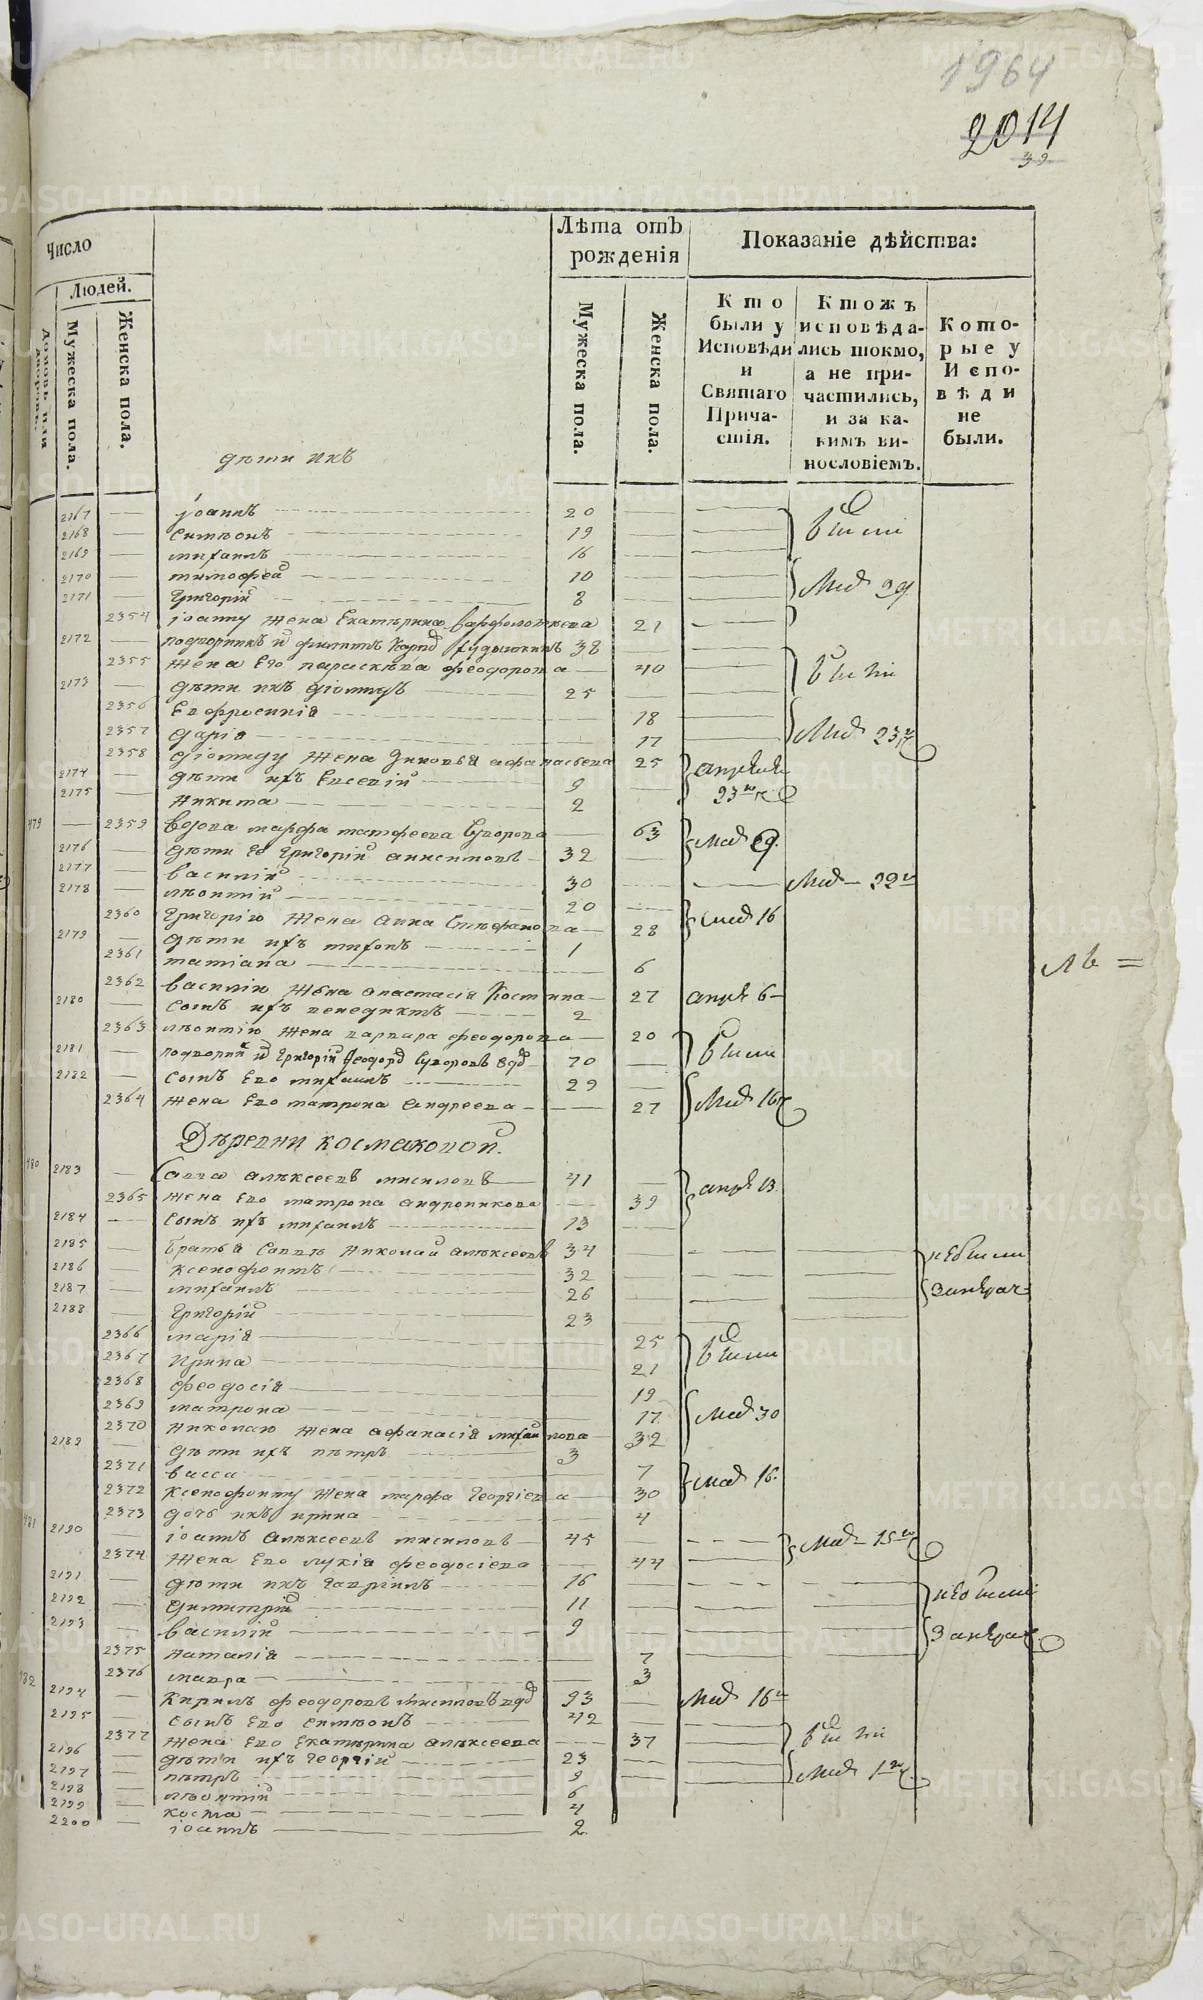 1964
2014
39
Число
Людей.
домовъ или дворовъ.
Мужеска пола.
Женска пола.
Лѣта отъ рожденія
Мужеска пола.
Женска пола.
Показаніе дѣйства:
Кто были у Исповѣди и Святаго Причастія.
Ктожъ исповѣдались токмо, а не причастились, и за какимъ винословіемъ.
Которые у Исповѣди не были.
дѣти ихъ
2167 іоаннъ 20
2168 Симѣонъ 19 были
2169 михаилъ 16
2170 тимофей 10 Маія 29
2171 Григорій 8
2354 іоанну жена Екатѣрина варфоломѣева 21
2172 38
2355 жена Его параскѣва феодорова 40 были
2173 дѣти ихъ діомидъ 25
2356 Евфросинія 18
2357 дарія 17 Маія 23
2358 діомиду жена Зиновія афанасьева 25 апрѣля
2174 дѣти ихъ Евсевій 9 23
2175 никита 2
479 2359 вдова марфа матфеева Суворова 63 маія 9
2176 дѣти Ее Григорій анисимовъ 32
2177 василій 30 Маія 22
2178 лѣонтій 20
2360 Григорію жена анна Стефанова 28 маія 16
2179 дѣти ихъ тихонъ 1
2361 татіана 6
лв =
2362 василію жена анастасія Костина 27 апрѣ 6
2180 Сынъ ихъ венедиктъ 2
2363 лѣонтію жена варвара феодорова 20
2181 Григорій Феодор Суворовъ вдв 70 были
2182 Сынъ Его михаилъ 29
2364 жена Его матрона андреева 27 Маія 16
Дѣревни космаковой.
480 2183 Савва алѣксеевъ мисиловъ 41
2365 жена Его матрона андроникова 39 апрѣ 13
2184 Сынъ ихъ михаилъ 13
2185 братья Саввы николай алѣксеевъ 34 небыли
2186 ксенофонтъ 32
2187 михаилъ 26
2188 Григорій 23
2366 марія 25
2367 ирина 21 были
2368 феодосія 19
2369 матрона 17 Маія 30
2370 николаю жена афанасія михайлова 32
2189 дѣти ихъ пѣтръ 3
2371 васса 7 маія 16
2372 ксенофонту жена марфа Георгіева 30
2373 дочь ихъ ирина 4
481 2190 іоаннъ алѣксеевъ мисиловъ 45 Маія 15
2374 жена Его лукія феодосіева 44
2191 дѣти ихъ Гавріилъ 16 небыли
2192 димитрій 11
2193 василій 9
2375 наталія 7
2376 мавра 3
482 2194 Кирилъ феодоровъ мисиловъ вдв 93 Маія 16
2195 Сынъ Его Симѣонъ 42
2377 жена Его Екатѣрина алѣксеева 37 были
2196 дѣти ихъ Георгій 23
2197 пѣтръ 9 Маія 1
2198 лѣонтій 6
2199 косма 4
2200 іоаннъ 2
METRIKI.GASO-URAL.RU